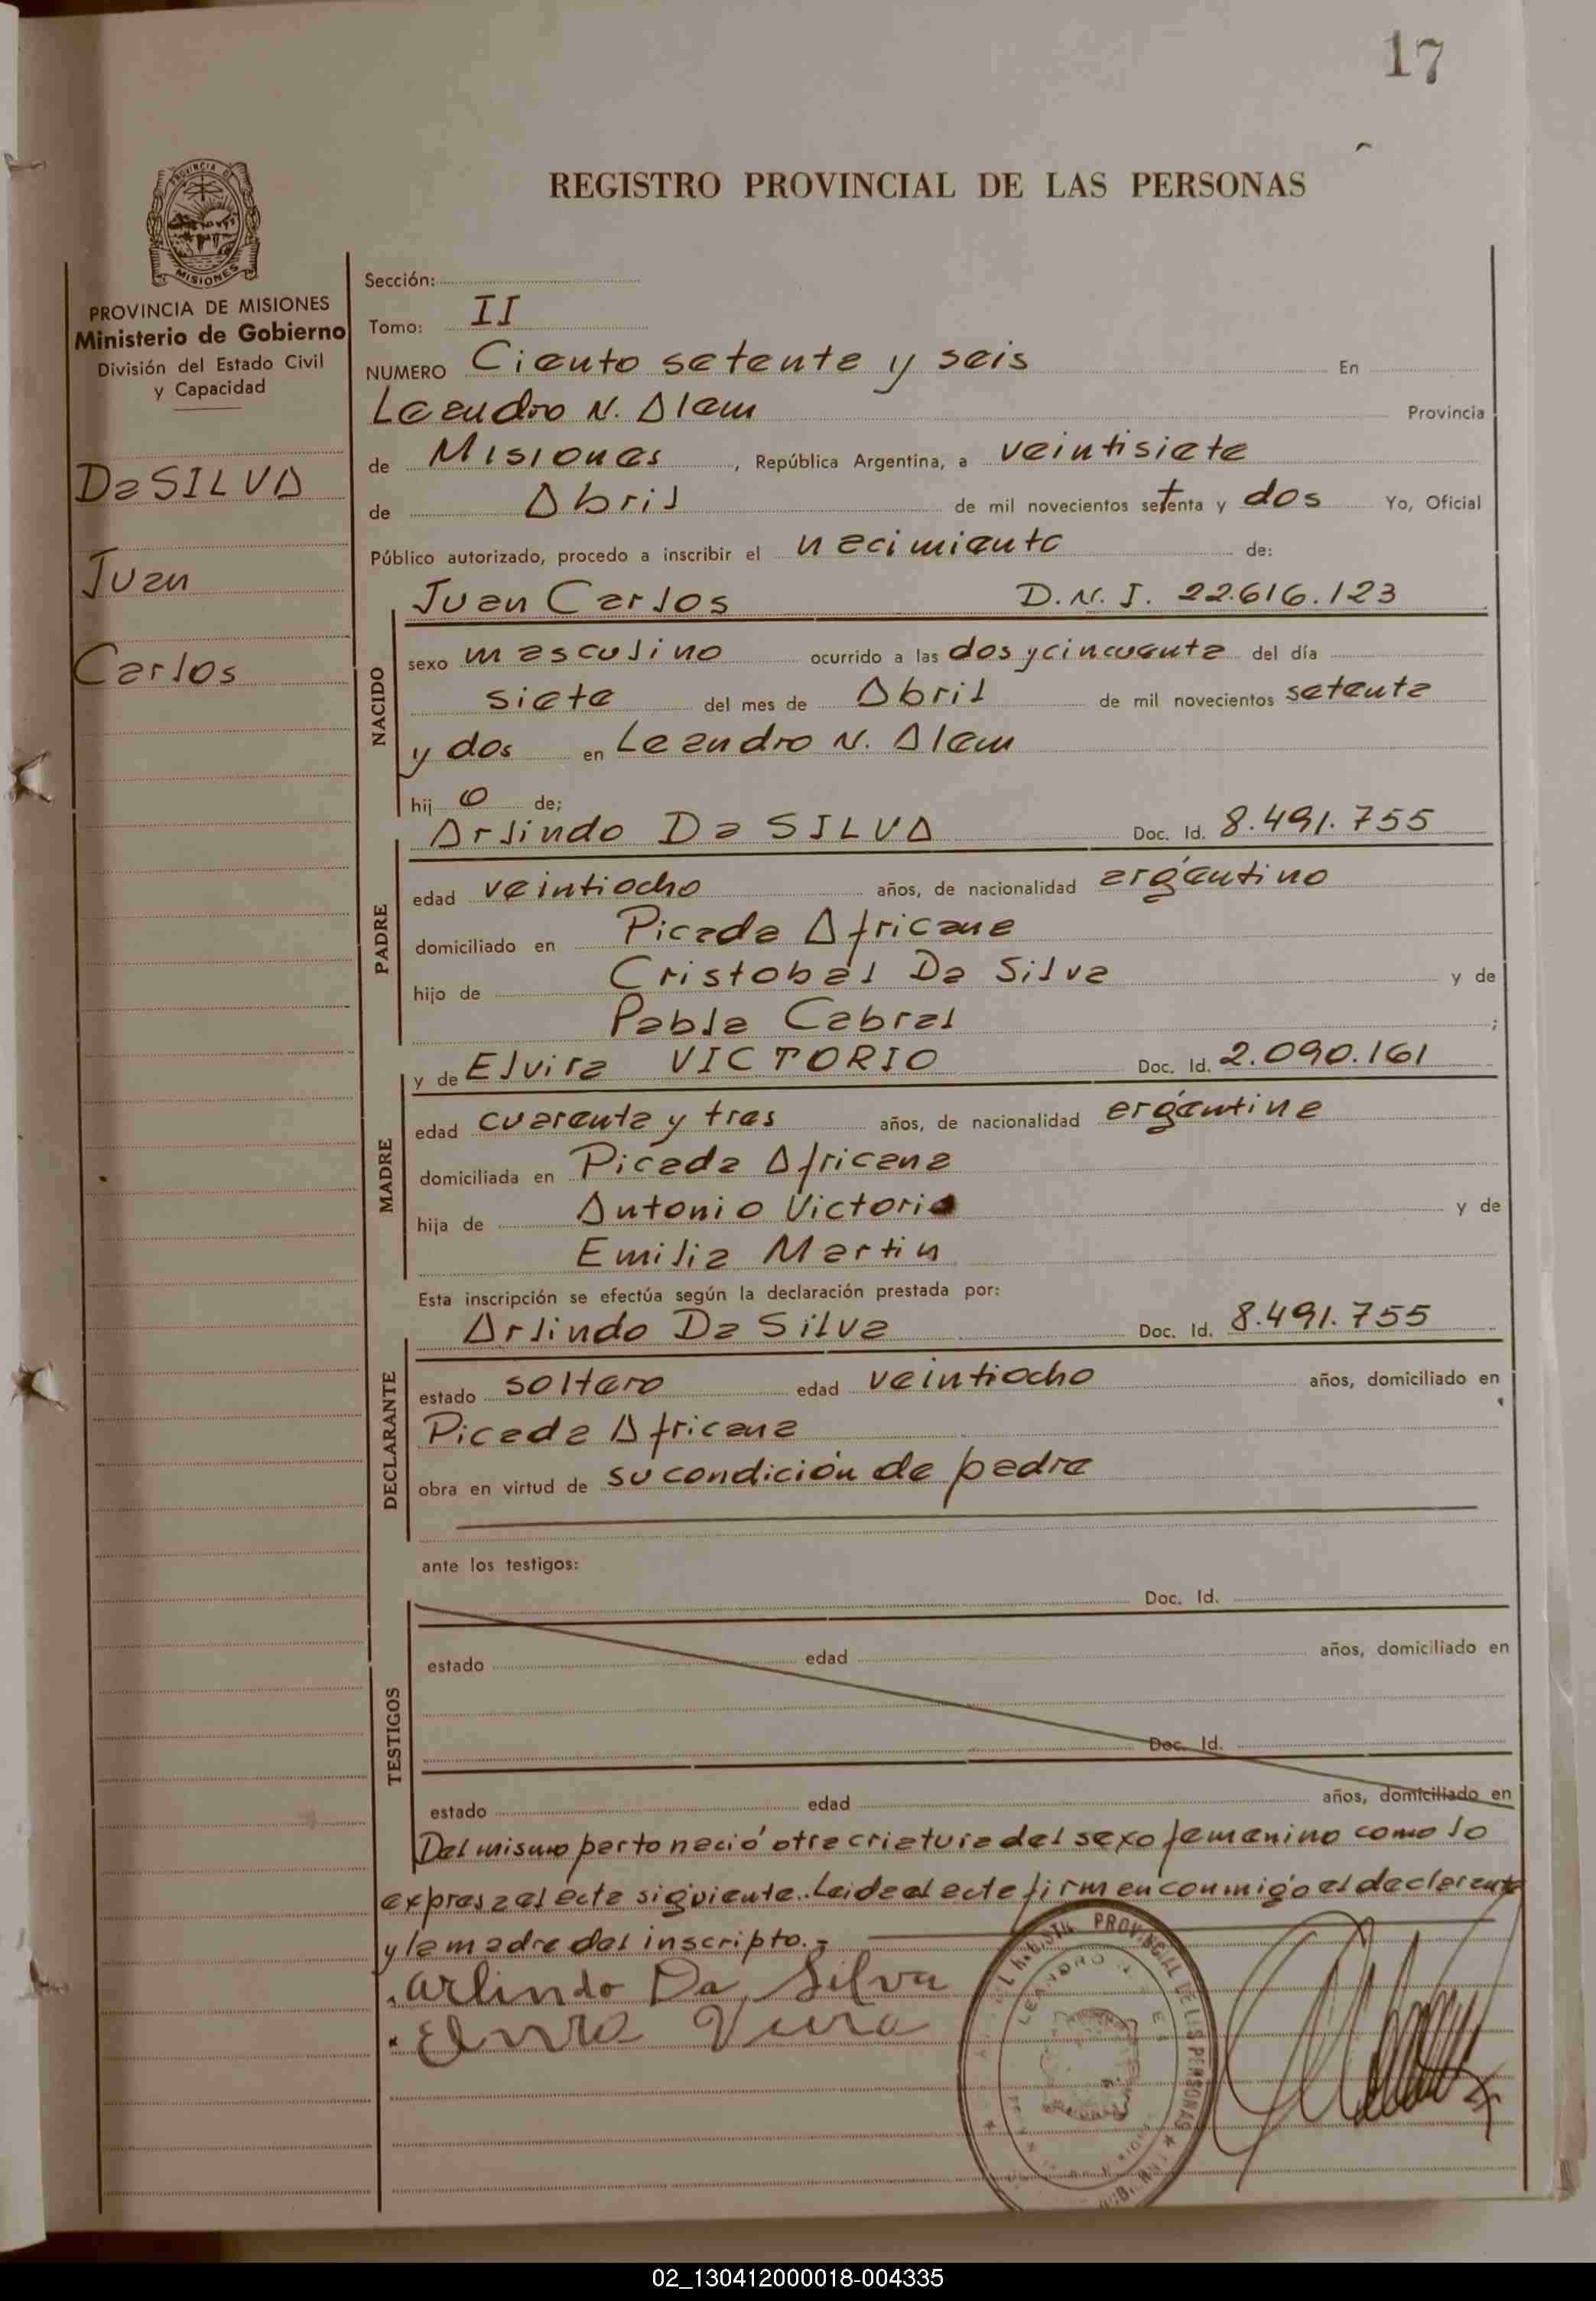 17
REGISTRO PROVINCIAL DE LAS PERSONAS
PROVINCIA DE
MISIONES
PROVINCIA DE MISIONES
Ministerio de Gobierno
División del Estado Civil
y Capacidad
Da SILVA
Juan
Carlos
Sección:
Tomo: II
NUMERO Ciento setenta y seis En
Leandro N. Alem Provincia
de Misiones, República Argentina, a veintisiete
de Abril de mil novecientos setenta y dos Yo, Oficial
Público autorizado, procedo a inscribir el nacimiento de:
Juan Carlos D.N.I. 22.616.123
NACIDO
sexo masculino ocurrido a las dos y cincuenta del día
siete del mes de Abril de mil novecientos setenta
y dos en Leandro N. Alem
hij o de;
Arlindo Da SILVA Doc. Id. 8.491.755
PADRE
edad veintiocho años, de nacionalidad argentino
domiciliado en Picada Africana
hijo de Cristobal Da Silva y de
Pabla Cabral ;
y de Elvira VICTORIO Doc. Id. 2.090.161
MADRE
edad cuarenta y tres años, de nacionalidad argentina
domiciliada en Picada Africana
hija de Antonio Victorio y de
Emilia Martin
Esta inscripción se efectúa según la declaración prestada por:
Arlindo Da Silva Doc. Id. 8.491.755
DECLARANTE
estado soltero edad veintiocho años, domiciliado en
Picada Africana
obra en virtud de su condición de padre
ante los testigos:
Doc. Id.
TESTIGOS
estado edad años, domiciliado en
Doc. Id.
estado edad años, domiciliado en
Del mismo parto nació otra criatura del sexo femenino como lo
expresa el acta siguiente. Leida el acta firman conmigo el declarante
y la madre del inscripto.-
Arlindo Da Silva
Elvira
PROVINCIAL DE LAS PERSONAS
LEANDRO N.
02_130412000018-004335